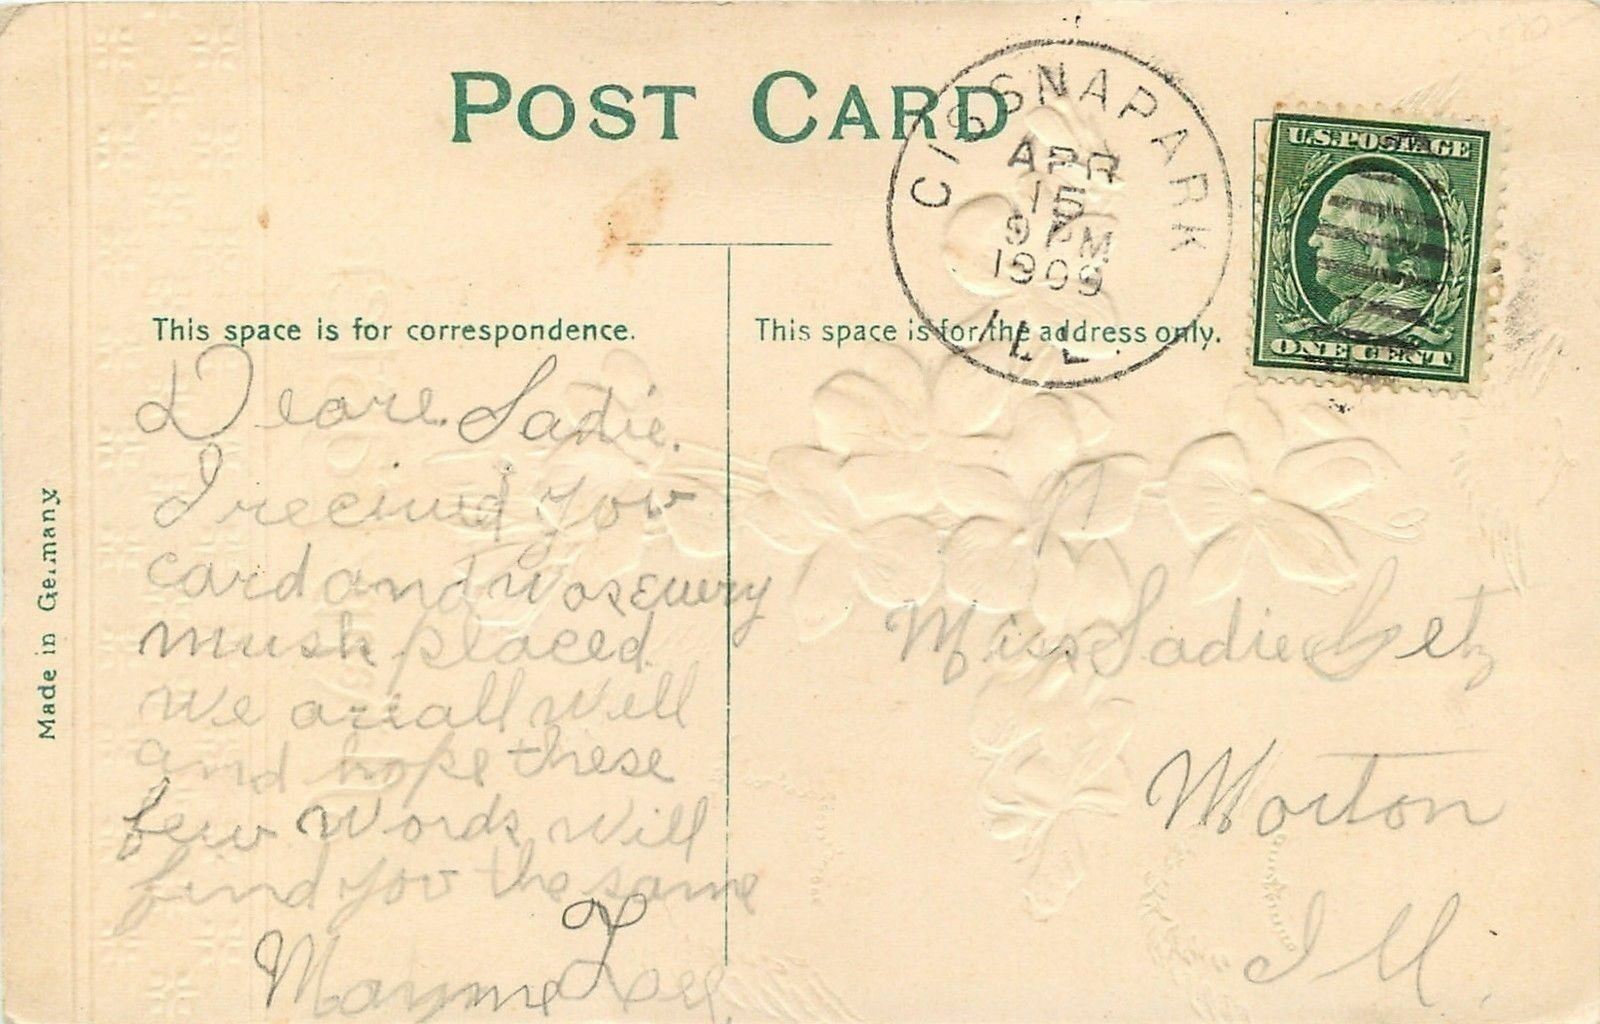 POST CARD
CISSNAPARK
APR
15
9 PM
1909
ILL
U.S. POSTAGE
ONE CENT
This space is for correspondence.
This space is for the address only.
Made in Germany
Deare Sadie.
I recived yow
card and was every
mush placed
we are all well
and hope these
few words will
find yov the same
Mayme
Miss Sadie Getz
Morton
Ill.